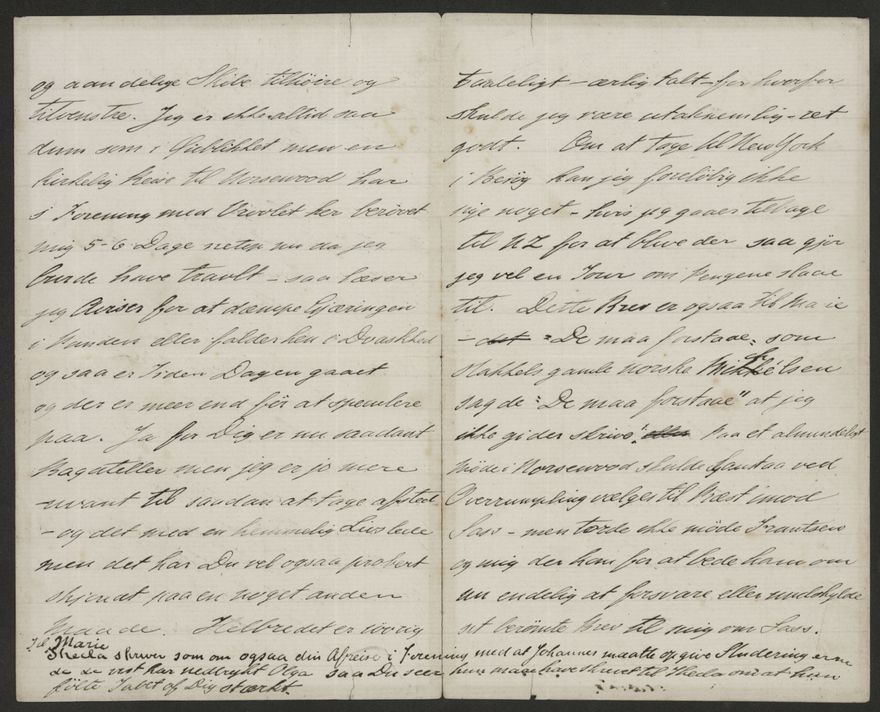 og aandelige Skibe tilhöire og
tilvenstre. Jeg er ikke altid saa
dum som i Öieblikket men en
kirkelig Reise til Norsewood har
i Forening med Vrövlet her berövet
mig 5-6 Dage netop nu da jeg
burde have travlt - saa læser
jeg Aviser for at dæmpe Gjæringen
i Manden eller falder hen i Dvaskhed
og saa er Tiden Dagen gaaet
og der er meer end för at spekulere
paa. Ja for Dig er nu saadant
Bagateller men jeg er jo mere
uvant til saadan at tage afsted
- og det med en hemmelig Livslede
men det har Du vel ogsaa probert
skjöndt paa en noget anden
Maade. Helbredet er iövrig
tvædeligt - ærlig talt - for hvorfor
skulde jeg være utaknemlig - ret
godt. Om at tage til New York
i Besög kan jeg foreløbig ikke
sige noget - hvis jeg gaaer tilbage
til NZ for at blive der saa gjör
jeg vel en Tour om Pengene slaae
til. Dette Brev er ogsaa til Marie
- det "De maa forstaae", som
stakkels gamle norske Mikkelsen
sagde "De maa forstaae" at jeg
ikke gider skrive". Paa et almindeligt
Möde i Norsewood skulde Gaustad ved
Overrumpling vælges til Præst imod
Sass - men torde ikke möde Frantsen
og mig der kom for at bede ham om
nu endelig at forsvare eller undskylde
sit berömte Brev til mig om Sass.
Til Marie
Thecla skriver som om ogsaa din Afreise i Forening med at Johannes maatte opgive Studering
de vist har nedtrykt Olga saa Du seer hun maa have skrevet til Thecla om at hun
fölte Tabet af Dig stærkt.